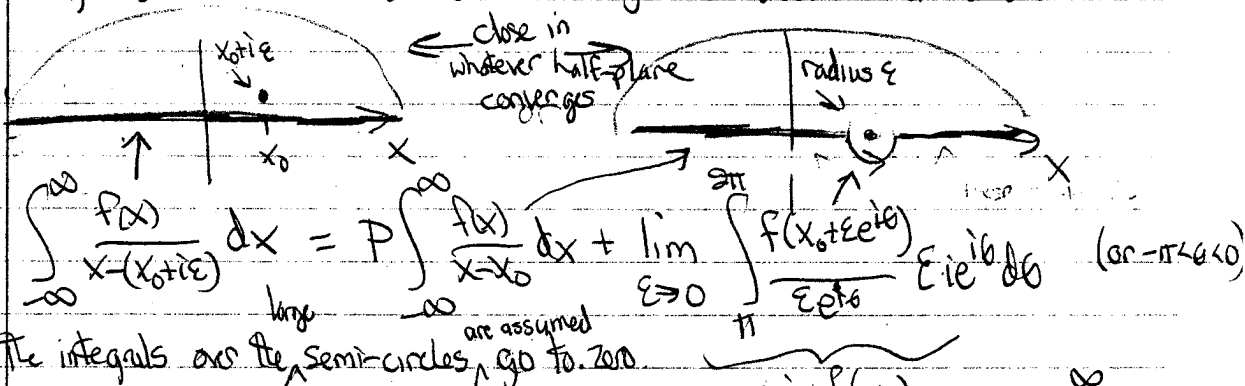 x₀+iε
close in
whatever half-plane
converges
radius ε
x₀
x
x
∫_{-∞}^{∞} f(x)/(x-(x₀+iε)) dx = P∫_{-∞}^{∞} f(x)/(x-x₀) dx + lim_{ε→0} ∫_{π}^{2π} f(x₀+εe^{iθ})/(εe^{iθ}) εie^{iθ}dθ (or -π<θ<0)
The integrals over the large semi-circles are assumed go to zero.